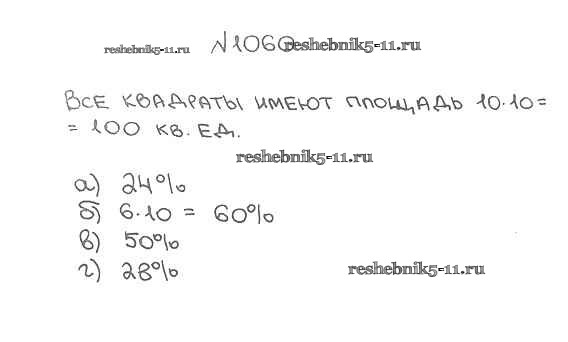 reshebnik5-11.ru №1060 reshebnik5-11.ru
ВСЕ КВАДРАТЫ ИМЕЮТ ПЛОЩАДЬ 10·10=
= 100 КВ. ЕД.
reshebnik5-11.ru
а) 24%
б) 6·10 = 60%
в) 50%
г) 28%
reshebnik5-11.ru